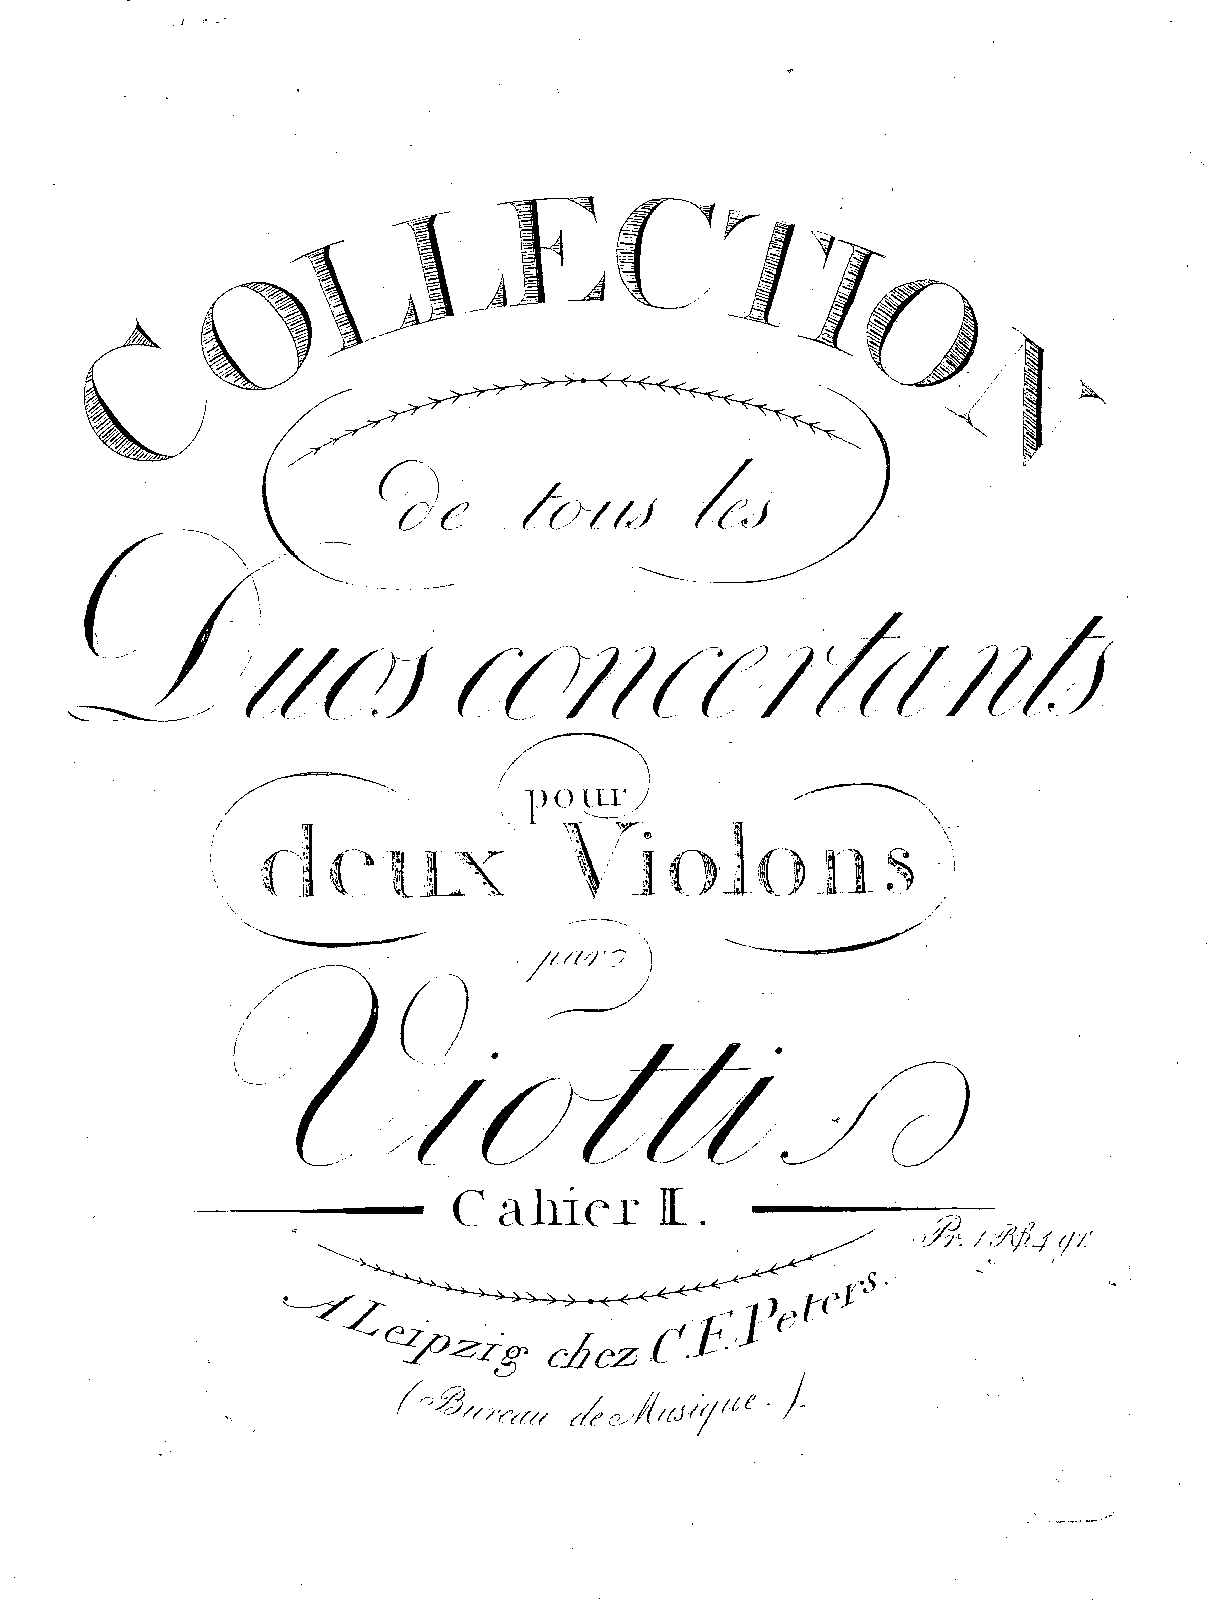 COLLECTION
de tous les
Duos concertants
pour
deux Violons
par
Viotti
Cahier II.
Pr. 1 Rth 4 gr.
A Leipzig chez C. F. Peters.
(Bureau de Musique.)